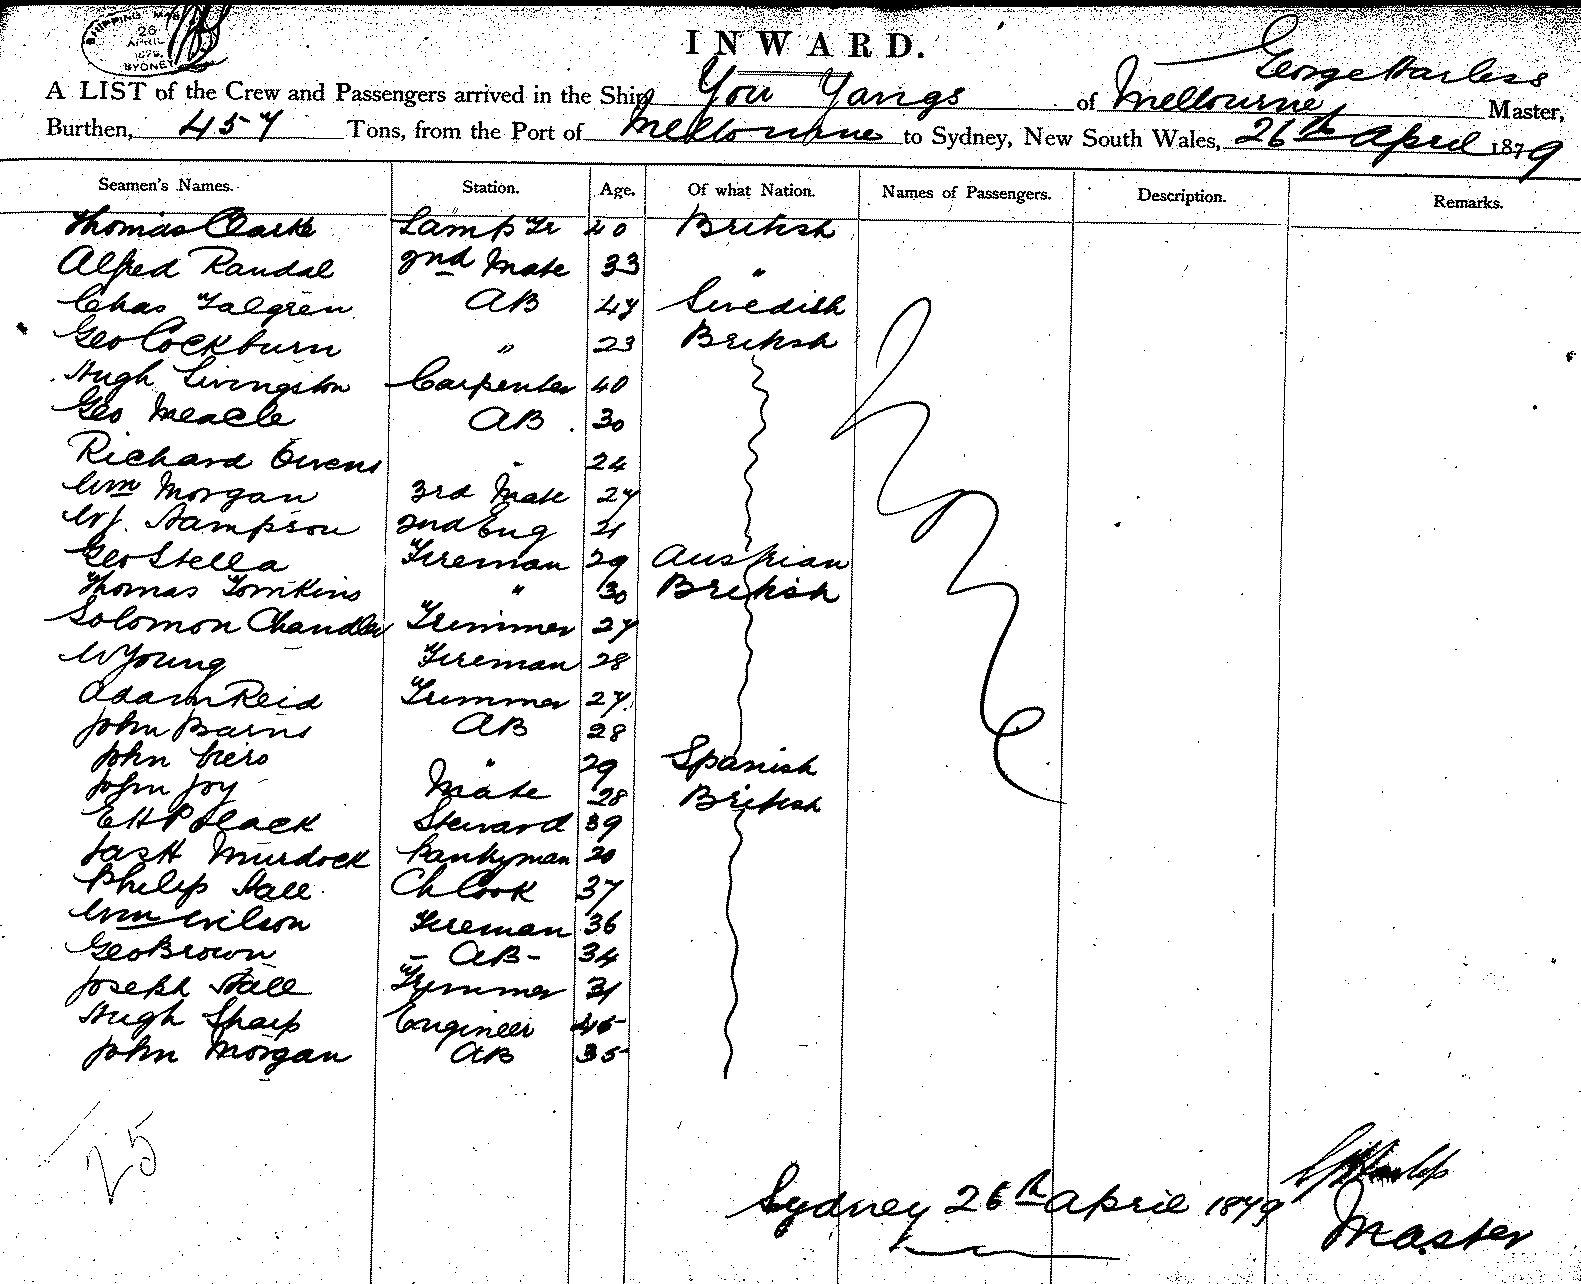 SHIPPING MAS
26
APRIL
1879
SYDNEY
INWARD.
George Harless
A LIST of the Crew and Passengers arrived in the Ship You Yangs of Melbourne Master,
Burthen, 457 Tons, from the Port of Melbourne to Sydney, New South Wales, 26th April 1879
Seamen's Names. Station. Age. Of what Nation. Names of Passengers. Description. Remarks.
Thomas Clarke Lamp Tr 20 British
Alfred Randal 2nd Mate 33 "
Chas Falgren AB 47 Swedish
Geo Cockburn " 23 British
Hugh Livingston Carpenter 40
Geo Meacle AB 30
Richard Owens " 24
Wm Morgan 3rd Mate 27
WJ. Hampson 2nd Eng 21
Geo Stella Fireman 29 Austrian
Thomas Tomkins " 30 British
Solomon Chandler Trimmer 27
W Young Fireman 28
Adam Reid Trimmer 27
John Barns AB 28
John " 29 Spanish
John Joy Mate 28 British
EHP Slack Steward 39
Jas H Murdock Pantryman 20
Philip Hall Ch Cook 37
Wm Wilson Fireman 36
Geo Brown - AB - 34
Joseph Hall Trimmer 31
Hugh Sharp Engineer 45
John Morgan AB 35
25
Sydney 26th April 1879
Master